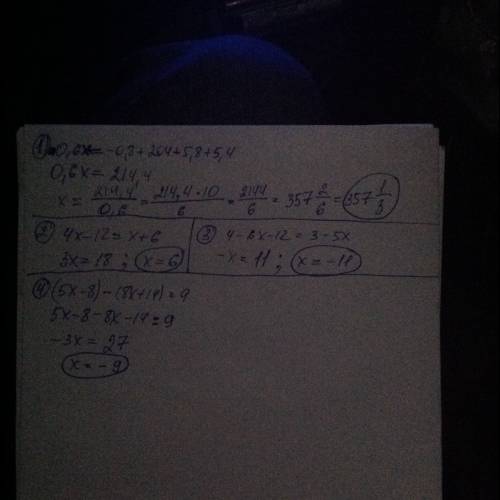 ① 0,6x = -0,8+204+5,8+5,4
0,6x = 214,4
x = 214,4/0,6 = 214,4·10/6 = 2144/6 = 357 2/6 = 357 1/3
② 4x-12 = x+6
3x = 18 ; x = 6
③ 4-6x-12 = 3-5x
-x = 11 ; x = -11
④ (5x-8) - (8x+14) = 9
5x-8-8x-14 = 9
-3x = 27
x = -9